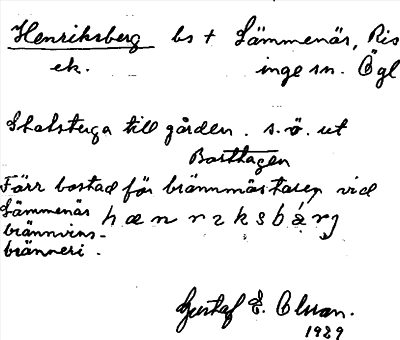 Henriksberg bs t Lämmenäs, Ris
ek. inge sn. Ögl
Statstuga till gården. s.ö. ut
Borttagen
Förr bostad för brännmästaren vid
Lämmenäs
brännvins-
bränneri.
hænrɩksbárj
Gustaf E. Olsson.
1929